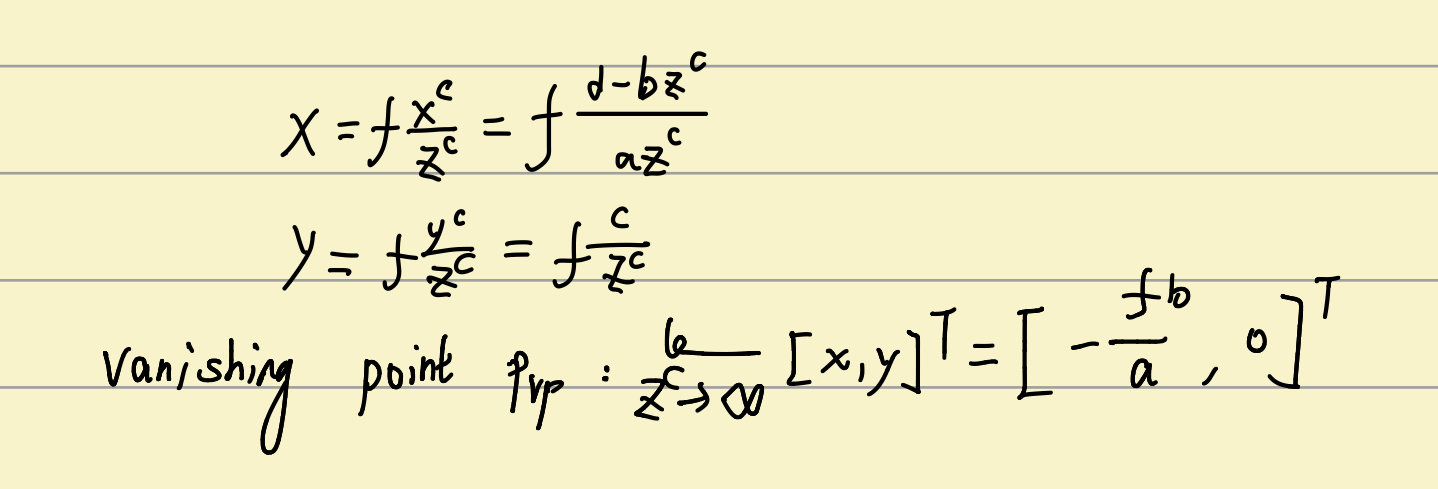 x = f x^c / z^c = f (d - b z^c) / (a z^c)
y = f y^c / z^c = f c / z^c
Vanishing point P_vp : z^c → ∞ [x, y]^T = [ - fb / a , 0 ]^T